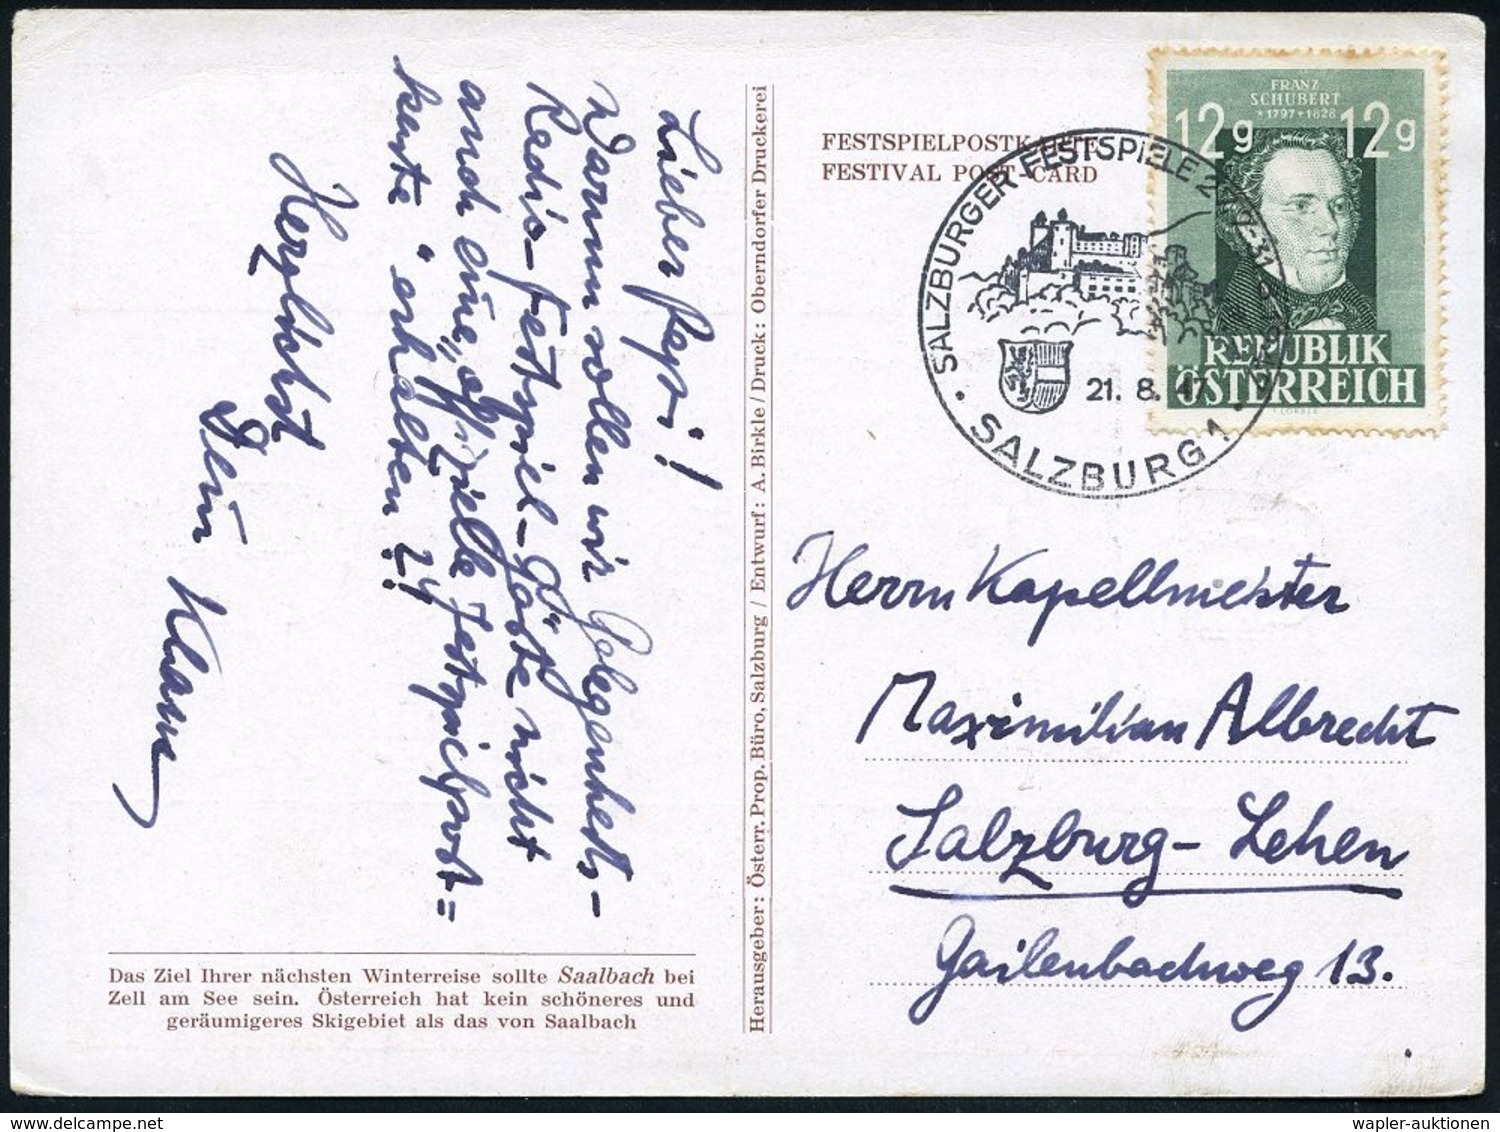 Lieber Pepi!
Warum sollen wir Gelegenheits-
Radio-Festspiel-Gäste nicht
auch eine „offizielle Festspielpost=
karte" erhalten?!
Herzlichst
Dein Klaus
Das Ziel Ihrer nächsten Winterreise sollte Saalbach bei
Zell am See sein. Österreich hat kein schöneres und
geräumigeres Skigebiet als das von Saalbach
Herausgeber: Österr. Prop. Büro, Salzburg / Entwurf: A. Birkle / Druck: Oberndorfer Druckerei
FESTSPIELPOSTKARTE
FESTIVAL POST-CARD
SALZBURGER FESTSPIELE
21. 8. 47
SALZBURG 1
FRANZ
SCHUBERT
*1797 +1828
12g 12g
REPUBLIK
ÖSTERREICH
Herrn Kapellmeister
Maximilian Albrecht
Salzburg-Lehen
Gailenbachweg 13.
wapler-auktionen